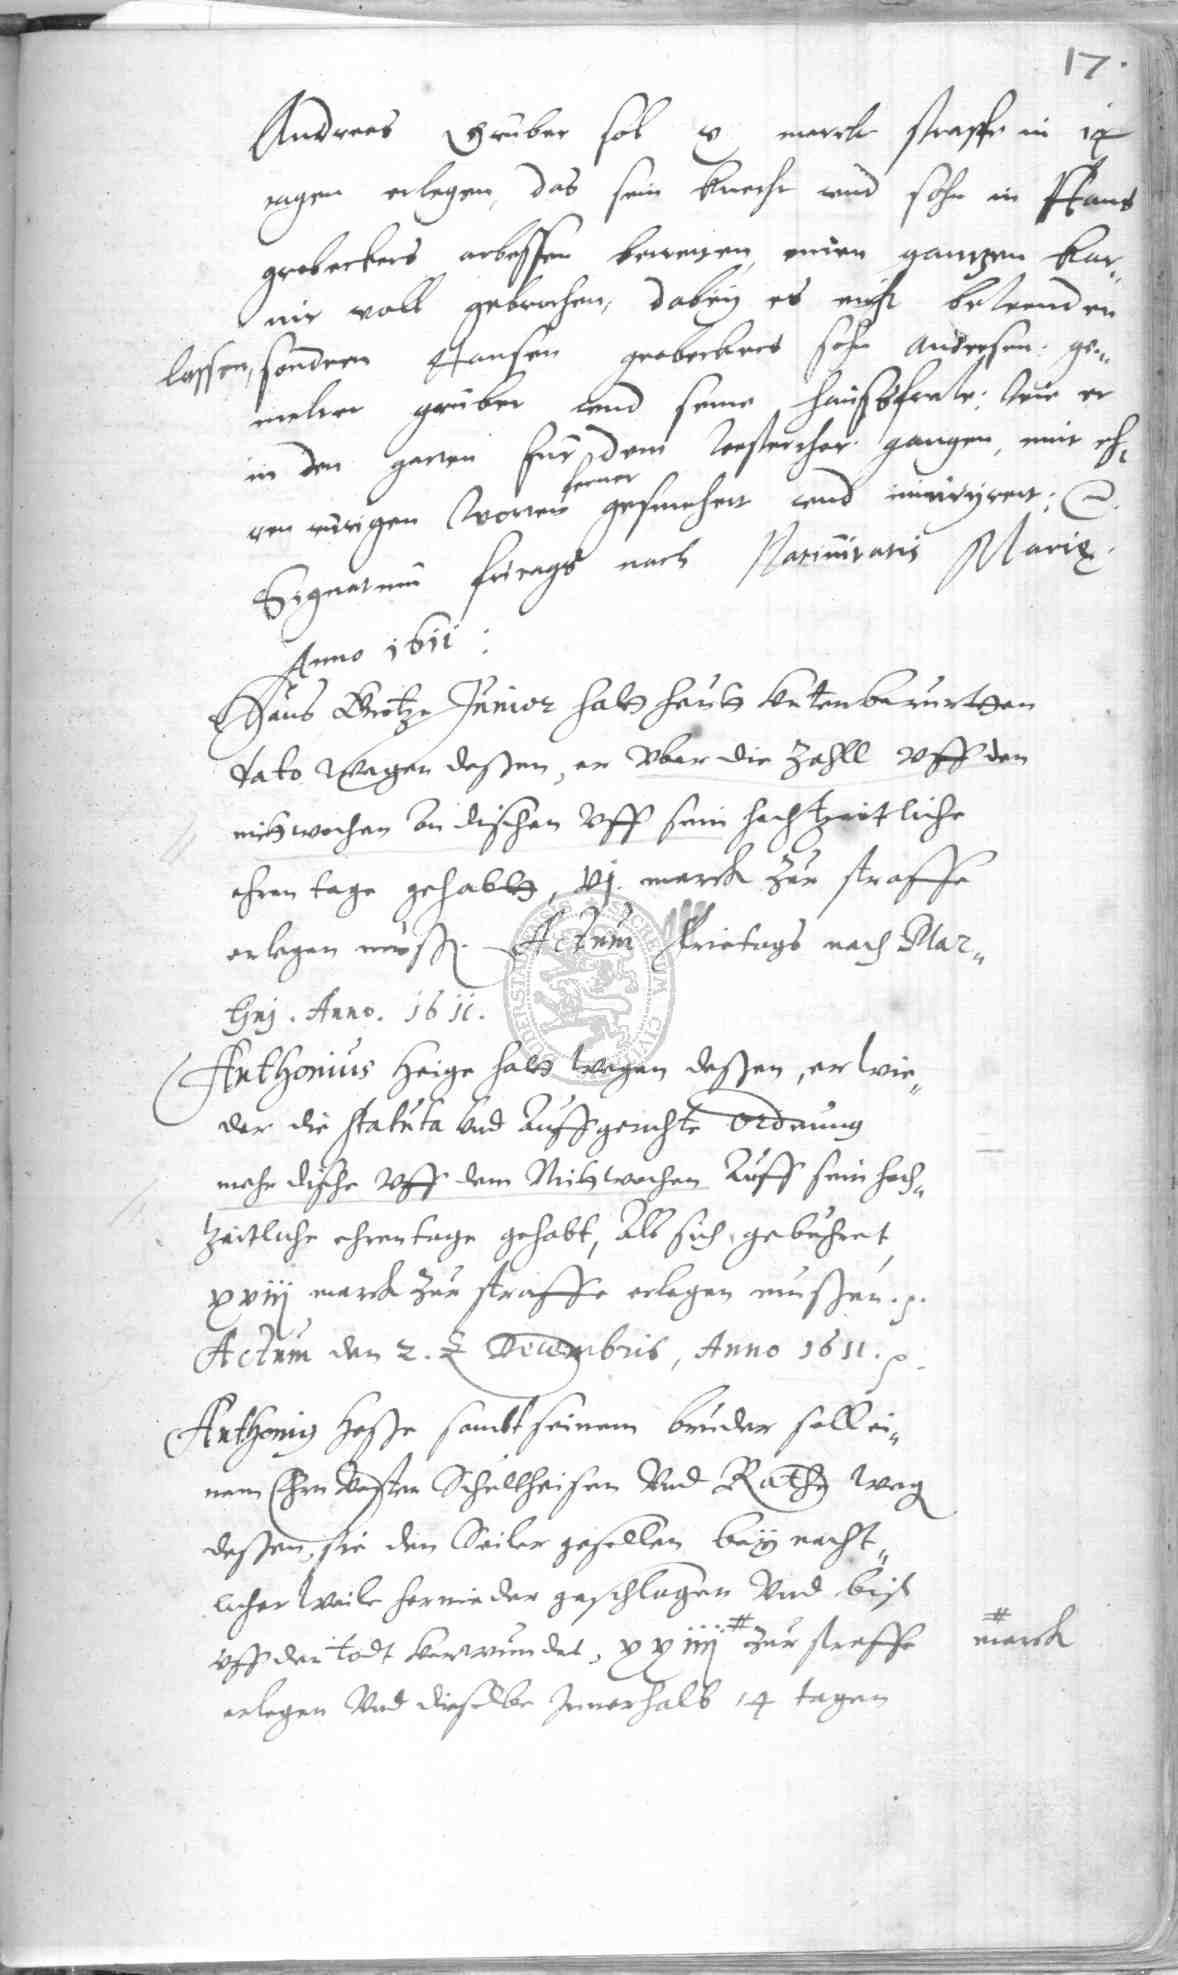 17.
Andreas Gruber sol v marck straffe in ix
tagen erlegen, das sein knecht und sohn in Hans
grobeckers arbessen betreten, einen gantzen kar„
nir voll gebrochen, dabey es nicht bewenden
lassen, sondern Hansen grobeckers sohn Andresen ge„
melter gruber und seine haußfrawe, wie er
in den garten für dem Westerthor gangen, mit eh„
ren rürigen worten ferner geschmehet und iniuryret.
Signatum freitags nach Natiuitatis Mariæ.
Anno 1611:
Hans Götze Junior hatt heutt untenberurtten
dato wegen deßen, er vber die Zahll vff den
mittwochen an dischen vff sein hochtzeitliche
ehren tage gehabtt, vj. marck zur straffe
erlegen muß. Actum freitags nach Mar„
tinj. Anno. 1611.
Anthonius Heige hatt wegen deßen, er wie„
der die statuta vnd Auffgerichte Ordnung
mehr dische vff dem Mittwochen Auff sein hoch„
zeitliche ehrentage gehabt, Als sich gebühret,
xviij marck zur straffe erlegen mußen.
Actum den 2. Decembris, Anno 1611.
Anthonig Heße sambt seinem bruder soll ei„
nem Ehrnvesten Schultheisen vnd Rathe weg
deßen, sie den Seiler gesellen bey nacht„
licher weile hernieder geschlagen vnd biß
vff den todt verwundet, xxiiij # zur straffe # marck
erlegen vnd dieselbe Innerhalb 14 tagen